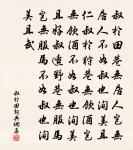 叔于田巷無居人豈無
居人不如叔也洵美且
仁叔于狩巷無飲酒豈
無飲酒不如叔也洵美
且好叔適野巷無服馬
豈無服馬不如叔也洵
美且武